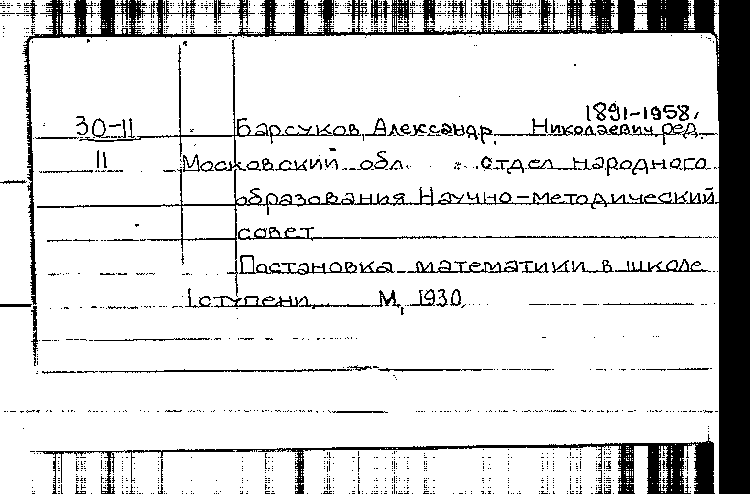 1891-1958,
30-11 Барсуков, Александр Николаевич, ред.
11 Московский обл. отдел народного
образования Научно-методический
совет
Постановка математики в школе
I ступени. М, 1930,